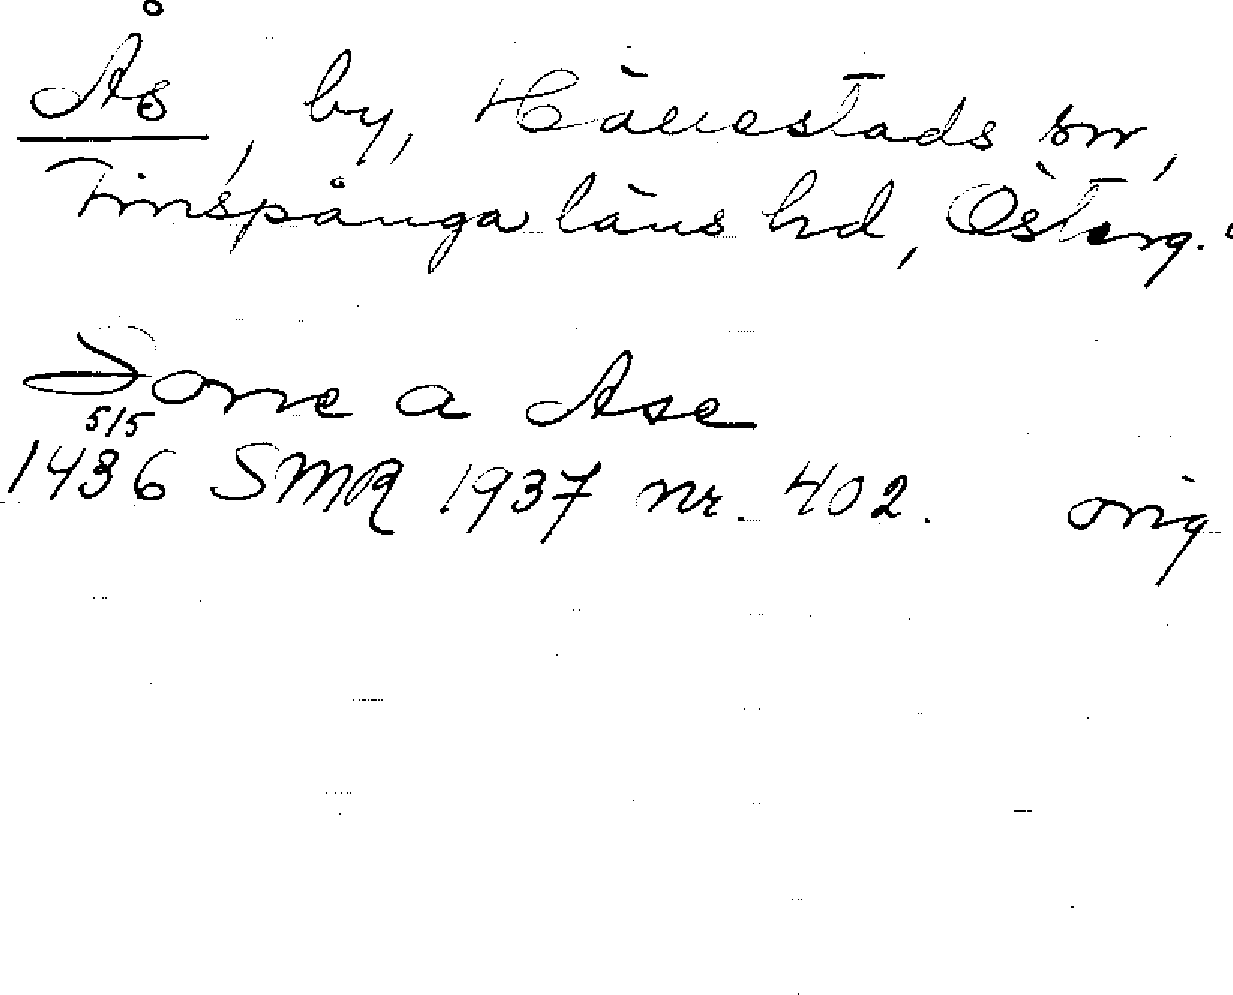 Ås, by, Hällestads sn,
Finspånga läns hd, Österg.
Torre a Ase
5/5
1436 SMR 1937 nr. 402. orig